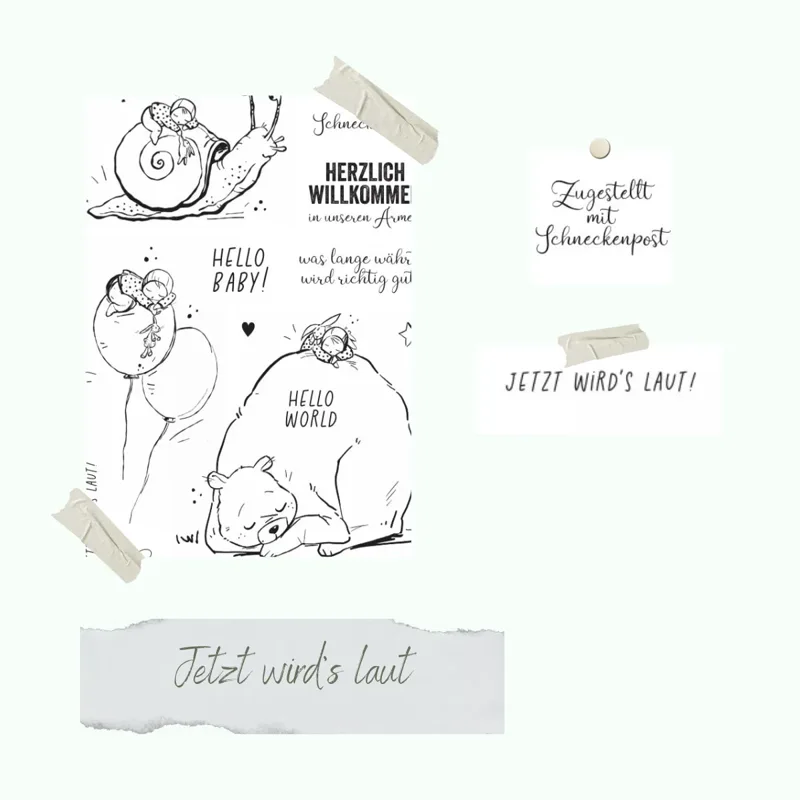 HERZLICH
WILLKOMME
in unseren Arme
HELLO
BABY!
was lange währ
wird richtig gut
HELLO
WORLD
Zugestellt
mit
Schneckenpost
JETZT WIRD'S LAUT!
LAUT!
Jetzt wird's laut